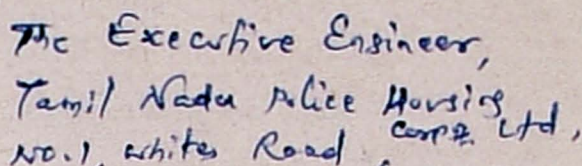 The Executive Engineer,
Tamil Nadu Police Housing
Corpn Ltd,
No.1, Whites Road,